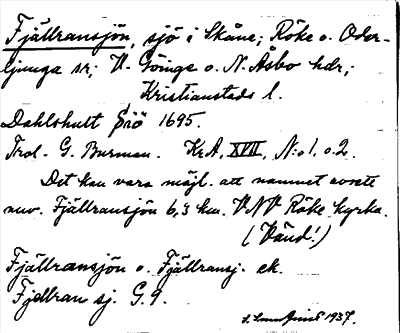 Fjällransjön, sjö i Skåne; Röke o. Oder-
ljunga sn; V. Göinge o. N. Åsbo hdr,;
Kristianstads l.
Dahlshult Siö 1695.
Trol. G. Burman. KrA, XVII, N:o 1, o. 2.
Det kan vara möjl. att namnet avsett
nuv. Fjällransjön 6,3 km. VNV Röke kyrka.
(Vänd!)
Fjällransjön o. Fjällransj. ek.
Fjellran sj. G. 9.
1937.